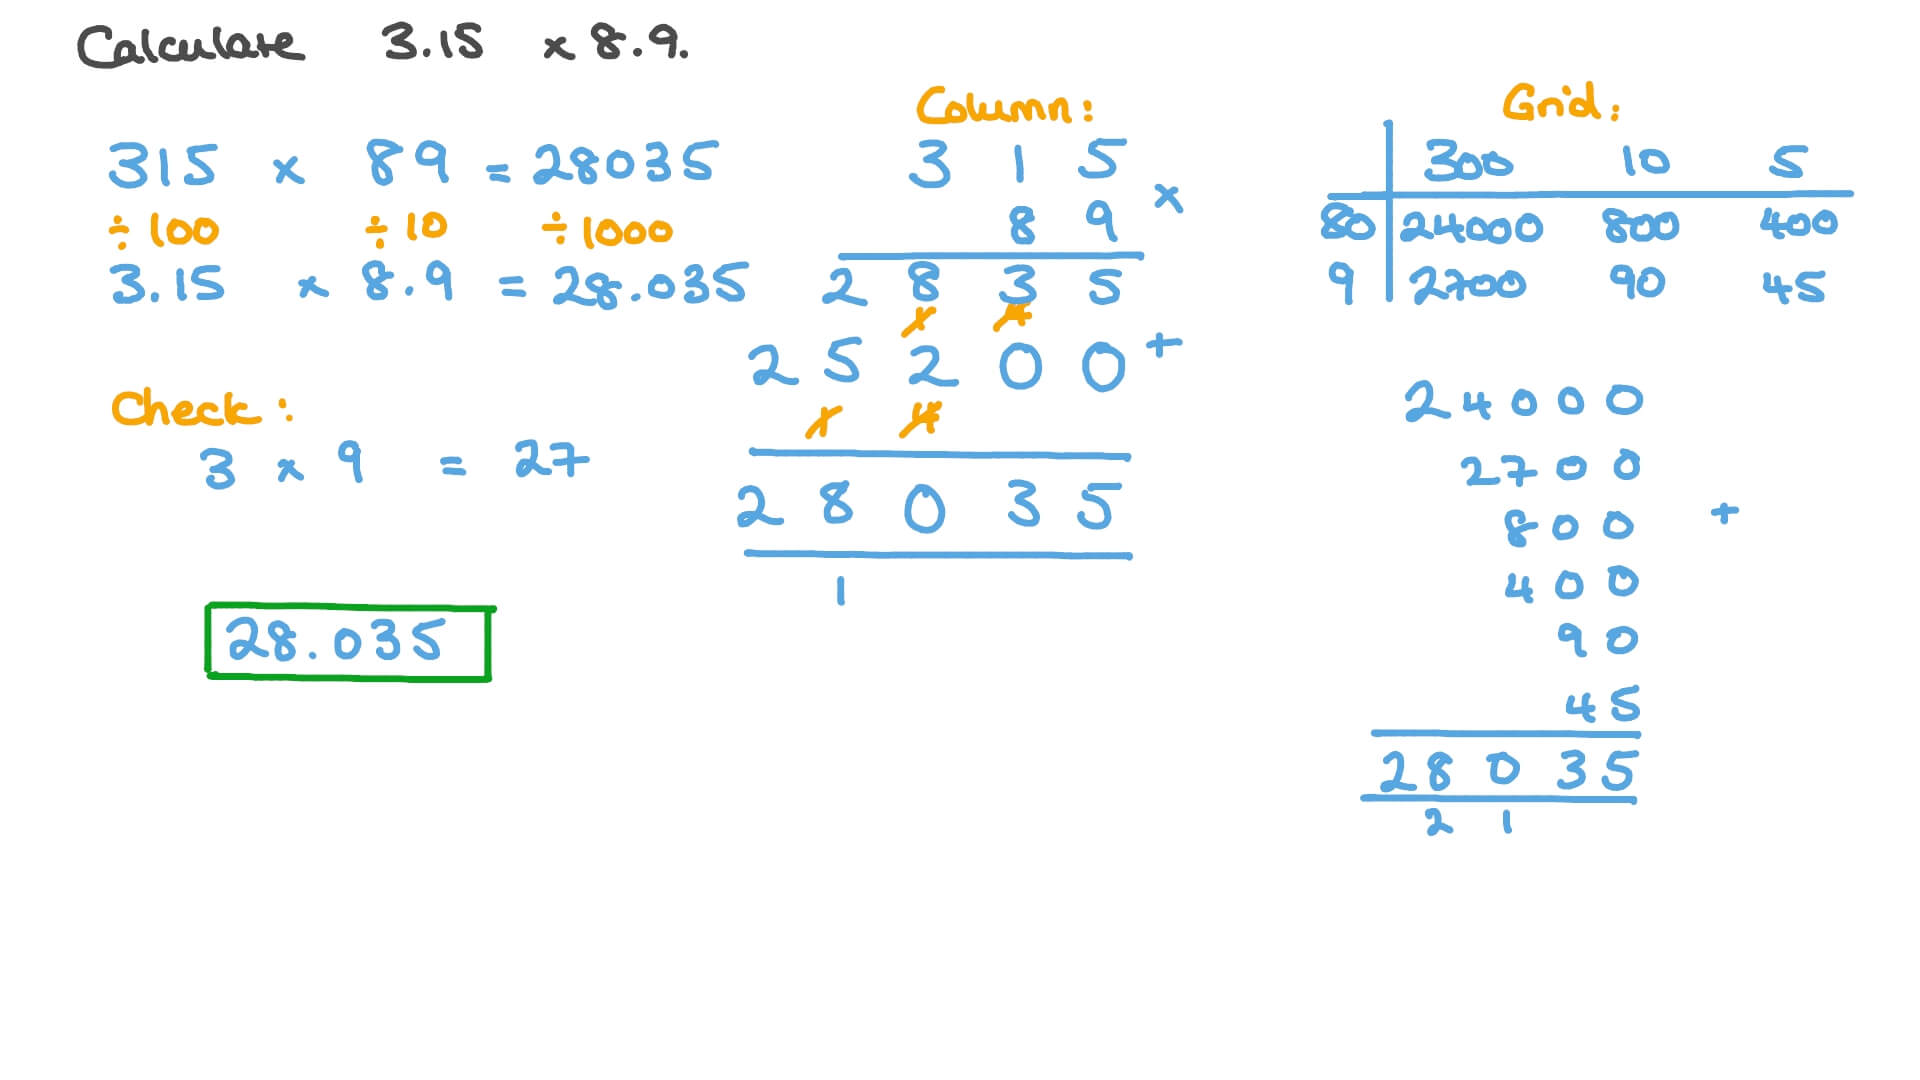 Calculate 3.15 × 8.9.
315 × 89 = 28035
÷ 100 ÷ 10 ÷ 1000
3.15 × 8.9 = 28.035
Check:
3 × 9 = 27
28.035
Column:
3 1 5
8 9 ×
2 8 3 5
1 4
2 5 2 0 0 +
1 4
2 8 0 3 5
1
Grid:
300 10 5
80 24000 800 400
9 2700 90 45
24000
2700
800 +
400
90
45
28035
2 1